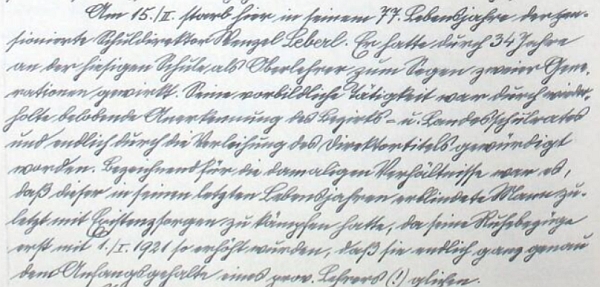 Am 15./II. starb hier in seinem 77. Lebensjahre der pen-
sionierte Schuldirektor Wenzel Leberl. Er hatte durch 34 Jahre
an der hiesigen Schule als Oberlehrer zum Segen zweier Gene-
rationen gewirkt. Seine vorbildliche Tätigkeit war durch wieder-
holte belobende Anerkennung des Bezirks- u. Landesschulrates
und endlich durch die Verleihung des Direktortitels gewürdigt
worden. Bezeichnend für die damaligen Verhältnisse war es,
daß dieser in seinen letzten Lebensjahren erblindete Mann zu-
letzt mit Existenzsorgen zu kämpfen hatte, da seine Ruhebezüge
erst mit 1./I. 1921 so erhöht wurden, daß sie endlich ganz genau
dem Anfangsgehalte eines prov. Lehrers (!) glichen.